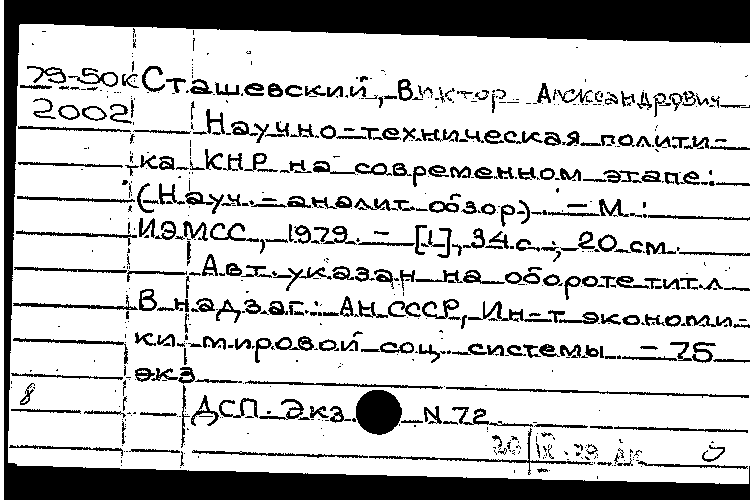 79-50к Сташевский, Виктор Александрович
2002 Научно-техническая полити-
ка КНР на современном этапе:
(Науч.-аналит. обзор). - М.:
ИЭМСС, 1979. - [1], 34 с.; 20 см.
Авт. указан на обороте тит. л
В надзаг.: АН СССР, Ин-т экономи-
ки мировой соц. системы - 75
экз
8 ДСП. Экз. N 72.
20 IX.79 АК